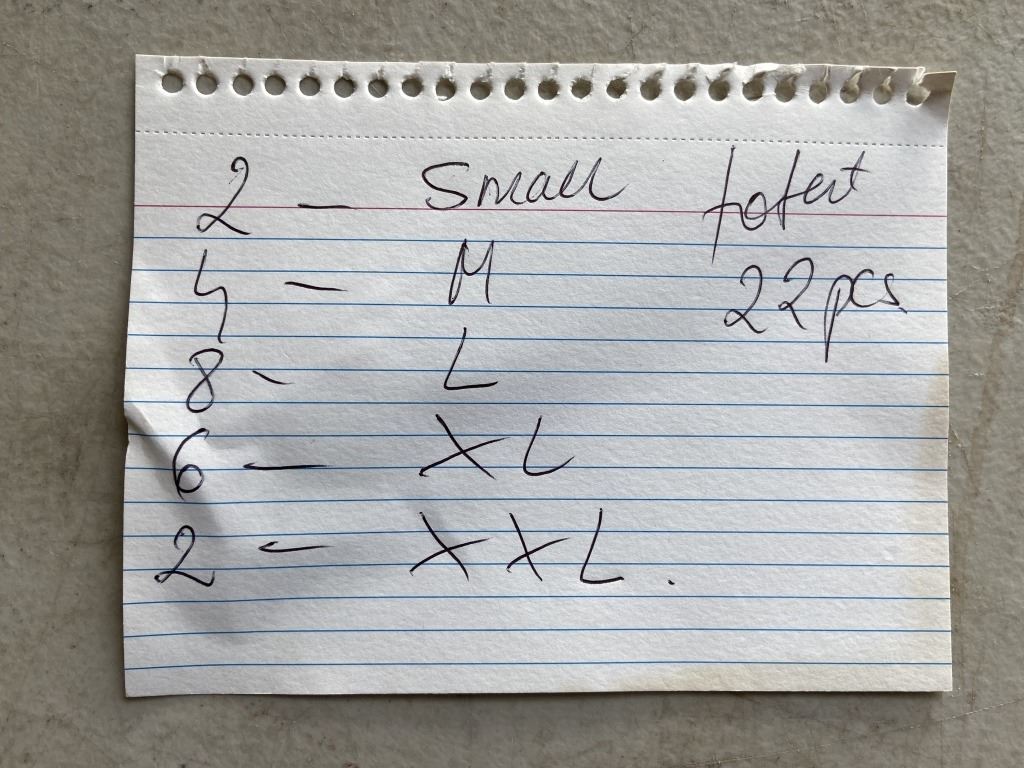 2 — Small
4 — M
8 - L
6 — XL
2 — XXL.
total
22 pcs